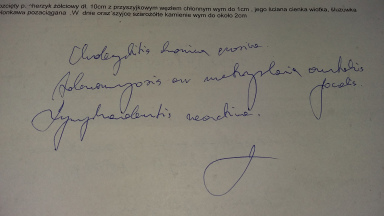 rzcięty p. herzyk żółciowy dł. 10cm z przyszyjkowym węzłem chłonnym wym do 1cm , jego ściana cienka wiotka, śluzówka
onkawa pozaciągana . W dnie oraz szyjce szarożółte kamienie wym do około 2cm
Cholecystitis chronica erosiva
Adenomyosis cum metaplasia focalis
Lymphadenitis reactiva.